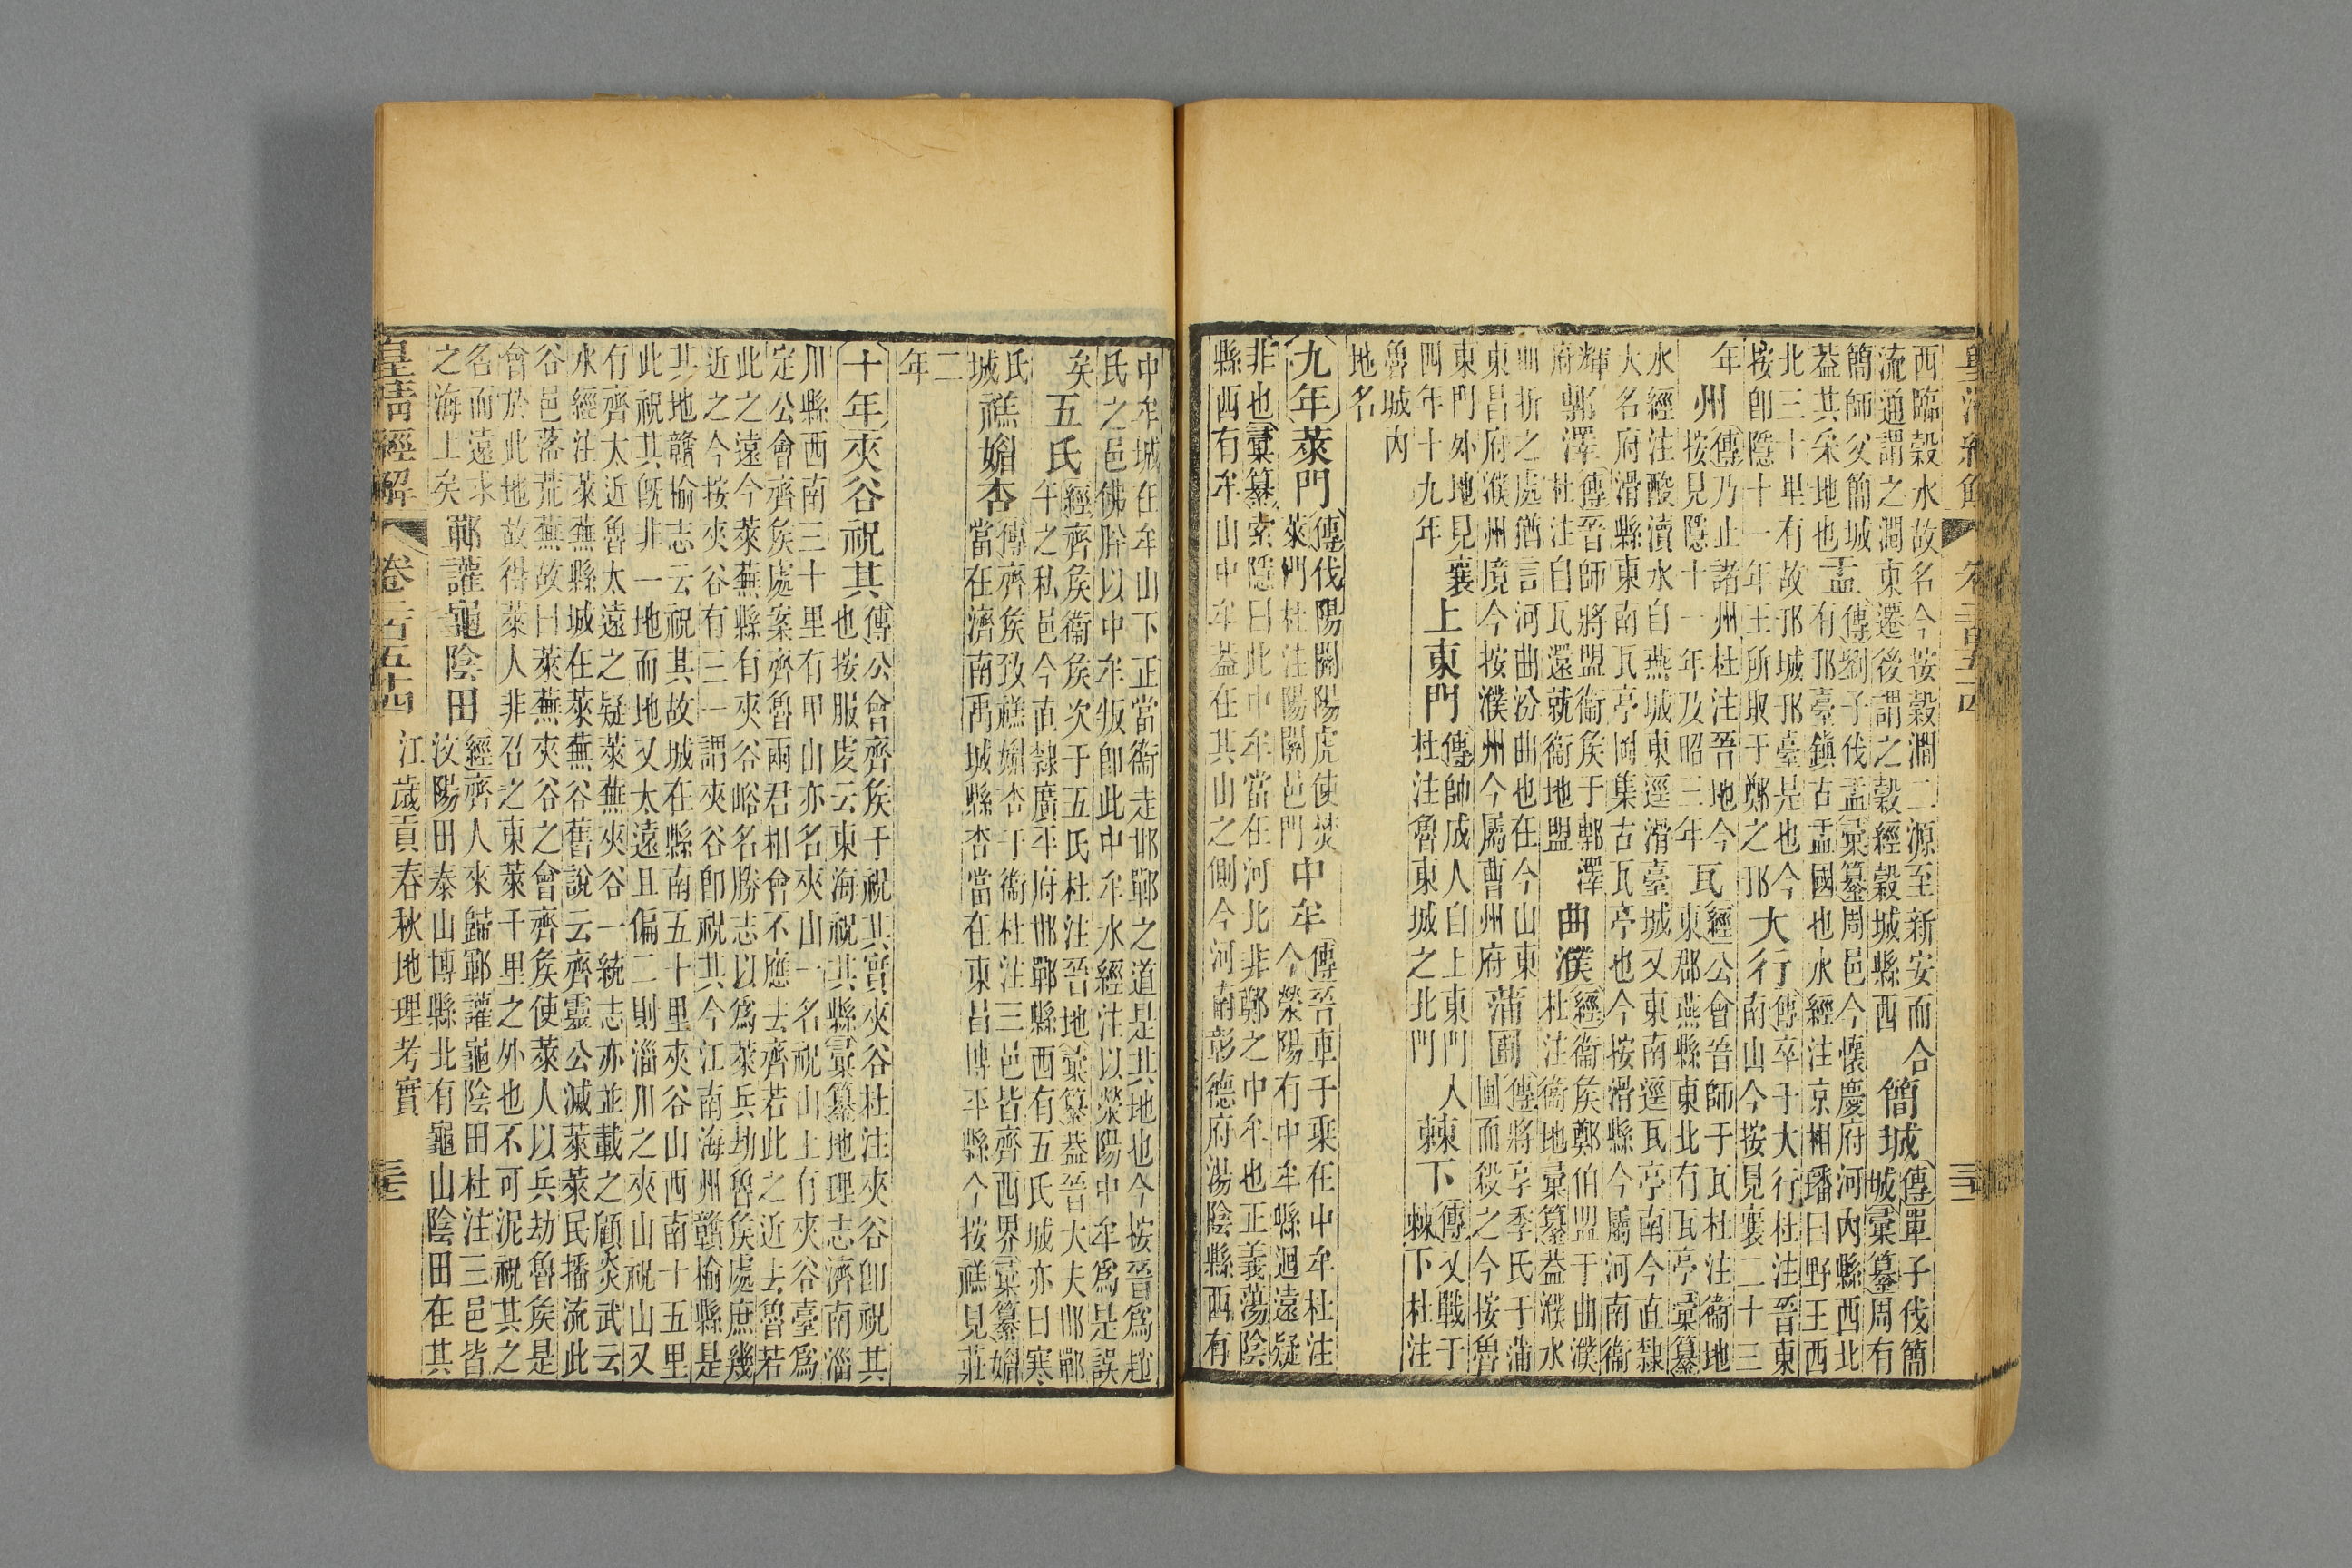 西臨榖水故名今按榖澗二源至新安而合
流通謂之澗東遷後謂之榖經榖城縣西
簡城
傳單子伐簡
城彙纂周有
簡師父簡城
葢其采地也
盂
傳劉子伐盂彙纂周邑今懷慶府河內縣西北
有邘臺鎮古盂國也水經注京相璠曰野王西
北三十里有故邘城邘臺是也今
按卽隱十一年王所取于鄭之邘
大行
傳卒于大行杜注晉東
南山今按見襄二十三
年
州
傳乃止諸州杜注晉地今
按見隱十一年及昭三年
瓦
經公會晉師于瓦杜注衞地
東郡燕縣東北有瓦亭彙纂
水經注酸瀆水自燕城東逕滑臺城又東南逕瓦亭南今直隸
大名府滑縣東南瓦亭岡集古瓦亭也今按滑縣今屬河南衞
輝
府
鄟澤
傳晉師將盟衞矦于鄟澤
杜注自瓦還就衞地盟
曲濮
經衞矦鄭伯盟于曲濮
杜注衞地彙纂葢濮水
曲折之處猶言河曲汾曲也在今山東
東昌府濮州境今按濮州今屬曹州府
蒲圃
傳將享季氏于蒲
圃而殺之今按魯
東門外地見襄
四年十九年
上東門
傳帥成人自上東門人
杜注魯東城之北門
棘下
傳又戰于
棘下杜注
魯城內
地名
九年
萊門
傳伐陽關陽虎使焚
萊門杜注陽關邑門
中牟
傳晉車千乘在中牟杜注
今滎陽有中牟縣迴遠疑
非也彙纂索隱曰此中牟當在河北非鄭之中牟也正義蕩陰
縣西有牟山中牟葢在其山之側今河南彰德府湯陰縣西有
中牟城在牟山下正當衞走邯鄲之道是其地也今按晉爲趙
氏之邑佛肸以中牟叛卽此中牟水經注以滎陽中牟爲是誤
矣
五氏
經齊矦衞矦次于五氏杜注晉地彙纂葢晉大夫邯鄲
午之私邑今直隸廣平府邯鄲縣西有五氏城亦曰寒
氏
城
禚媚杏
傳齊矦致禚媚杏于衞杜注三邑皆齊西界彙纂媚
當在濟南禹城縣杏當在東昌博平縣今按禚見莊
二
年
十年
夾谷祝其
傳公會齊矦于祝其實夾谷杜注夾谷卽祝其
也按服虔云東海祝其縣彙纂地理志濟南淄
川縣西南三十里有甲山亦名夾山一名祝山上有夾谷臺爲
定公會齊矦處案齊魯兩君相會不應去齊若此之近去魯若
此之遠今萊蕪縣有夾谷峪名勝志以爲萊兵劫魯矦處庶幾
近之今按夾谷有三一謂夾谷卽祝其今江南海州贛榆縣是
其地贛榆志云祝其故城在縣南五十里夾谷山西南十五里
此祝其旣非一地而地又太遠且偏二則淄川之夾山祝山又
有齊太近魯太遠之疑萊蕪夾谷一統志亦並載之顧炎武云
水經注萊蕪縣城在萊蕪谷舊說云齊靈公滅萊萊民播流此
谷邑落荒蕪故曰萊蕪夾谷之會齊矦使萊人以兵劫魯矦是
會於此地故得萊人非召之東萊千里之外也不可泥祝其之
名而遠求
之海上矣
鄆讙龜陰田
經齊人來歸鄆讙龜陰田杜注三邑皆
汶陽田泰山博縣北有龜山陰田在其
皇清經解 卷二百五十四 江歲貢春秋地理考實